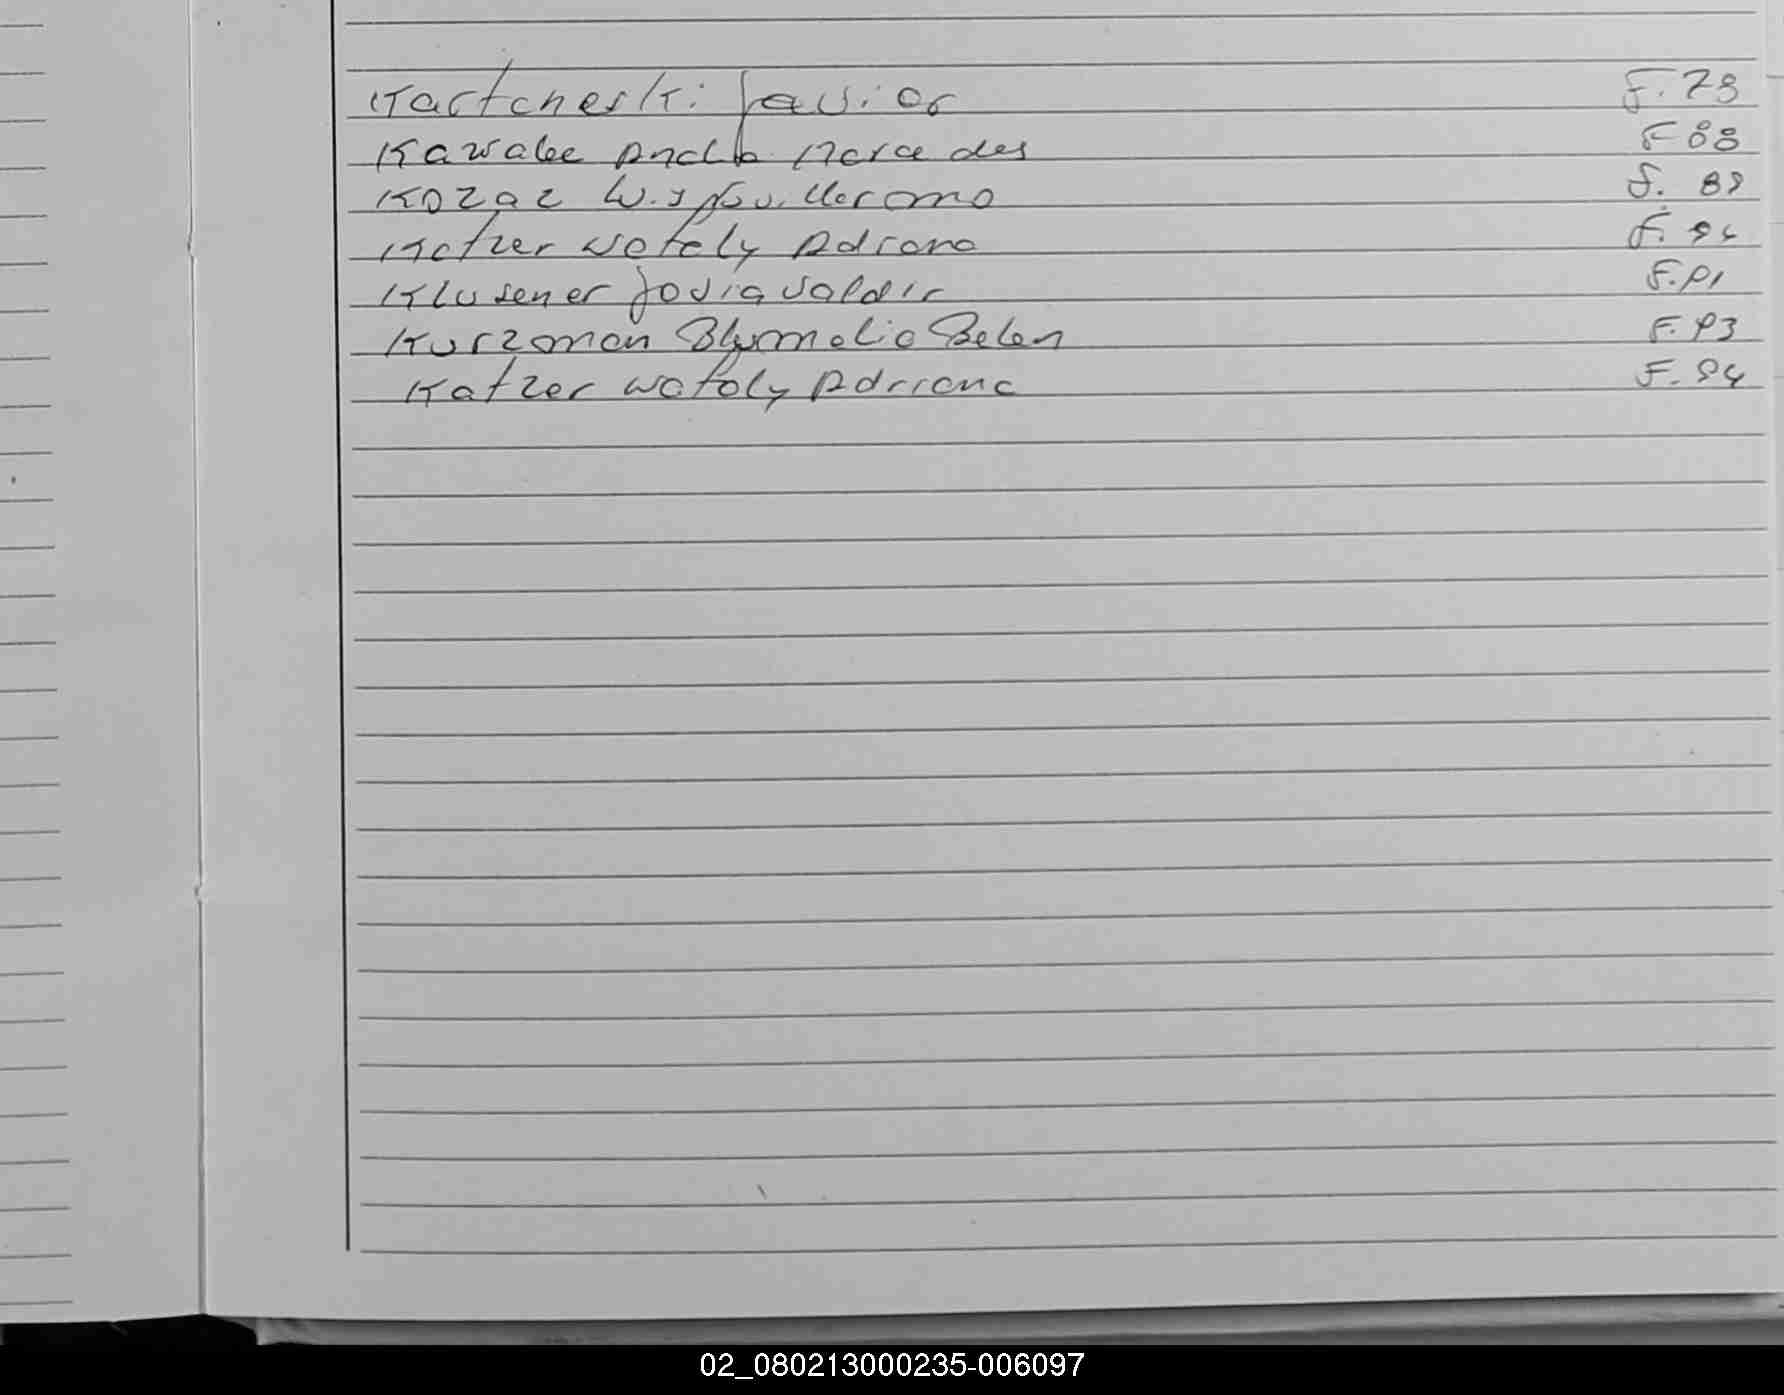 Kartcheski Javier F. 79
Kawabe Andla Mercedes F 88
Kozac F. 89
Katzer Nataly Adriana F. 94
Klusener Josia Valdir F. 91
Kurzman Blumelia Belen F. 93
Katzer Nataly Adriana F. 94
02_080213000235-006097